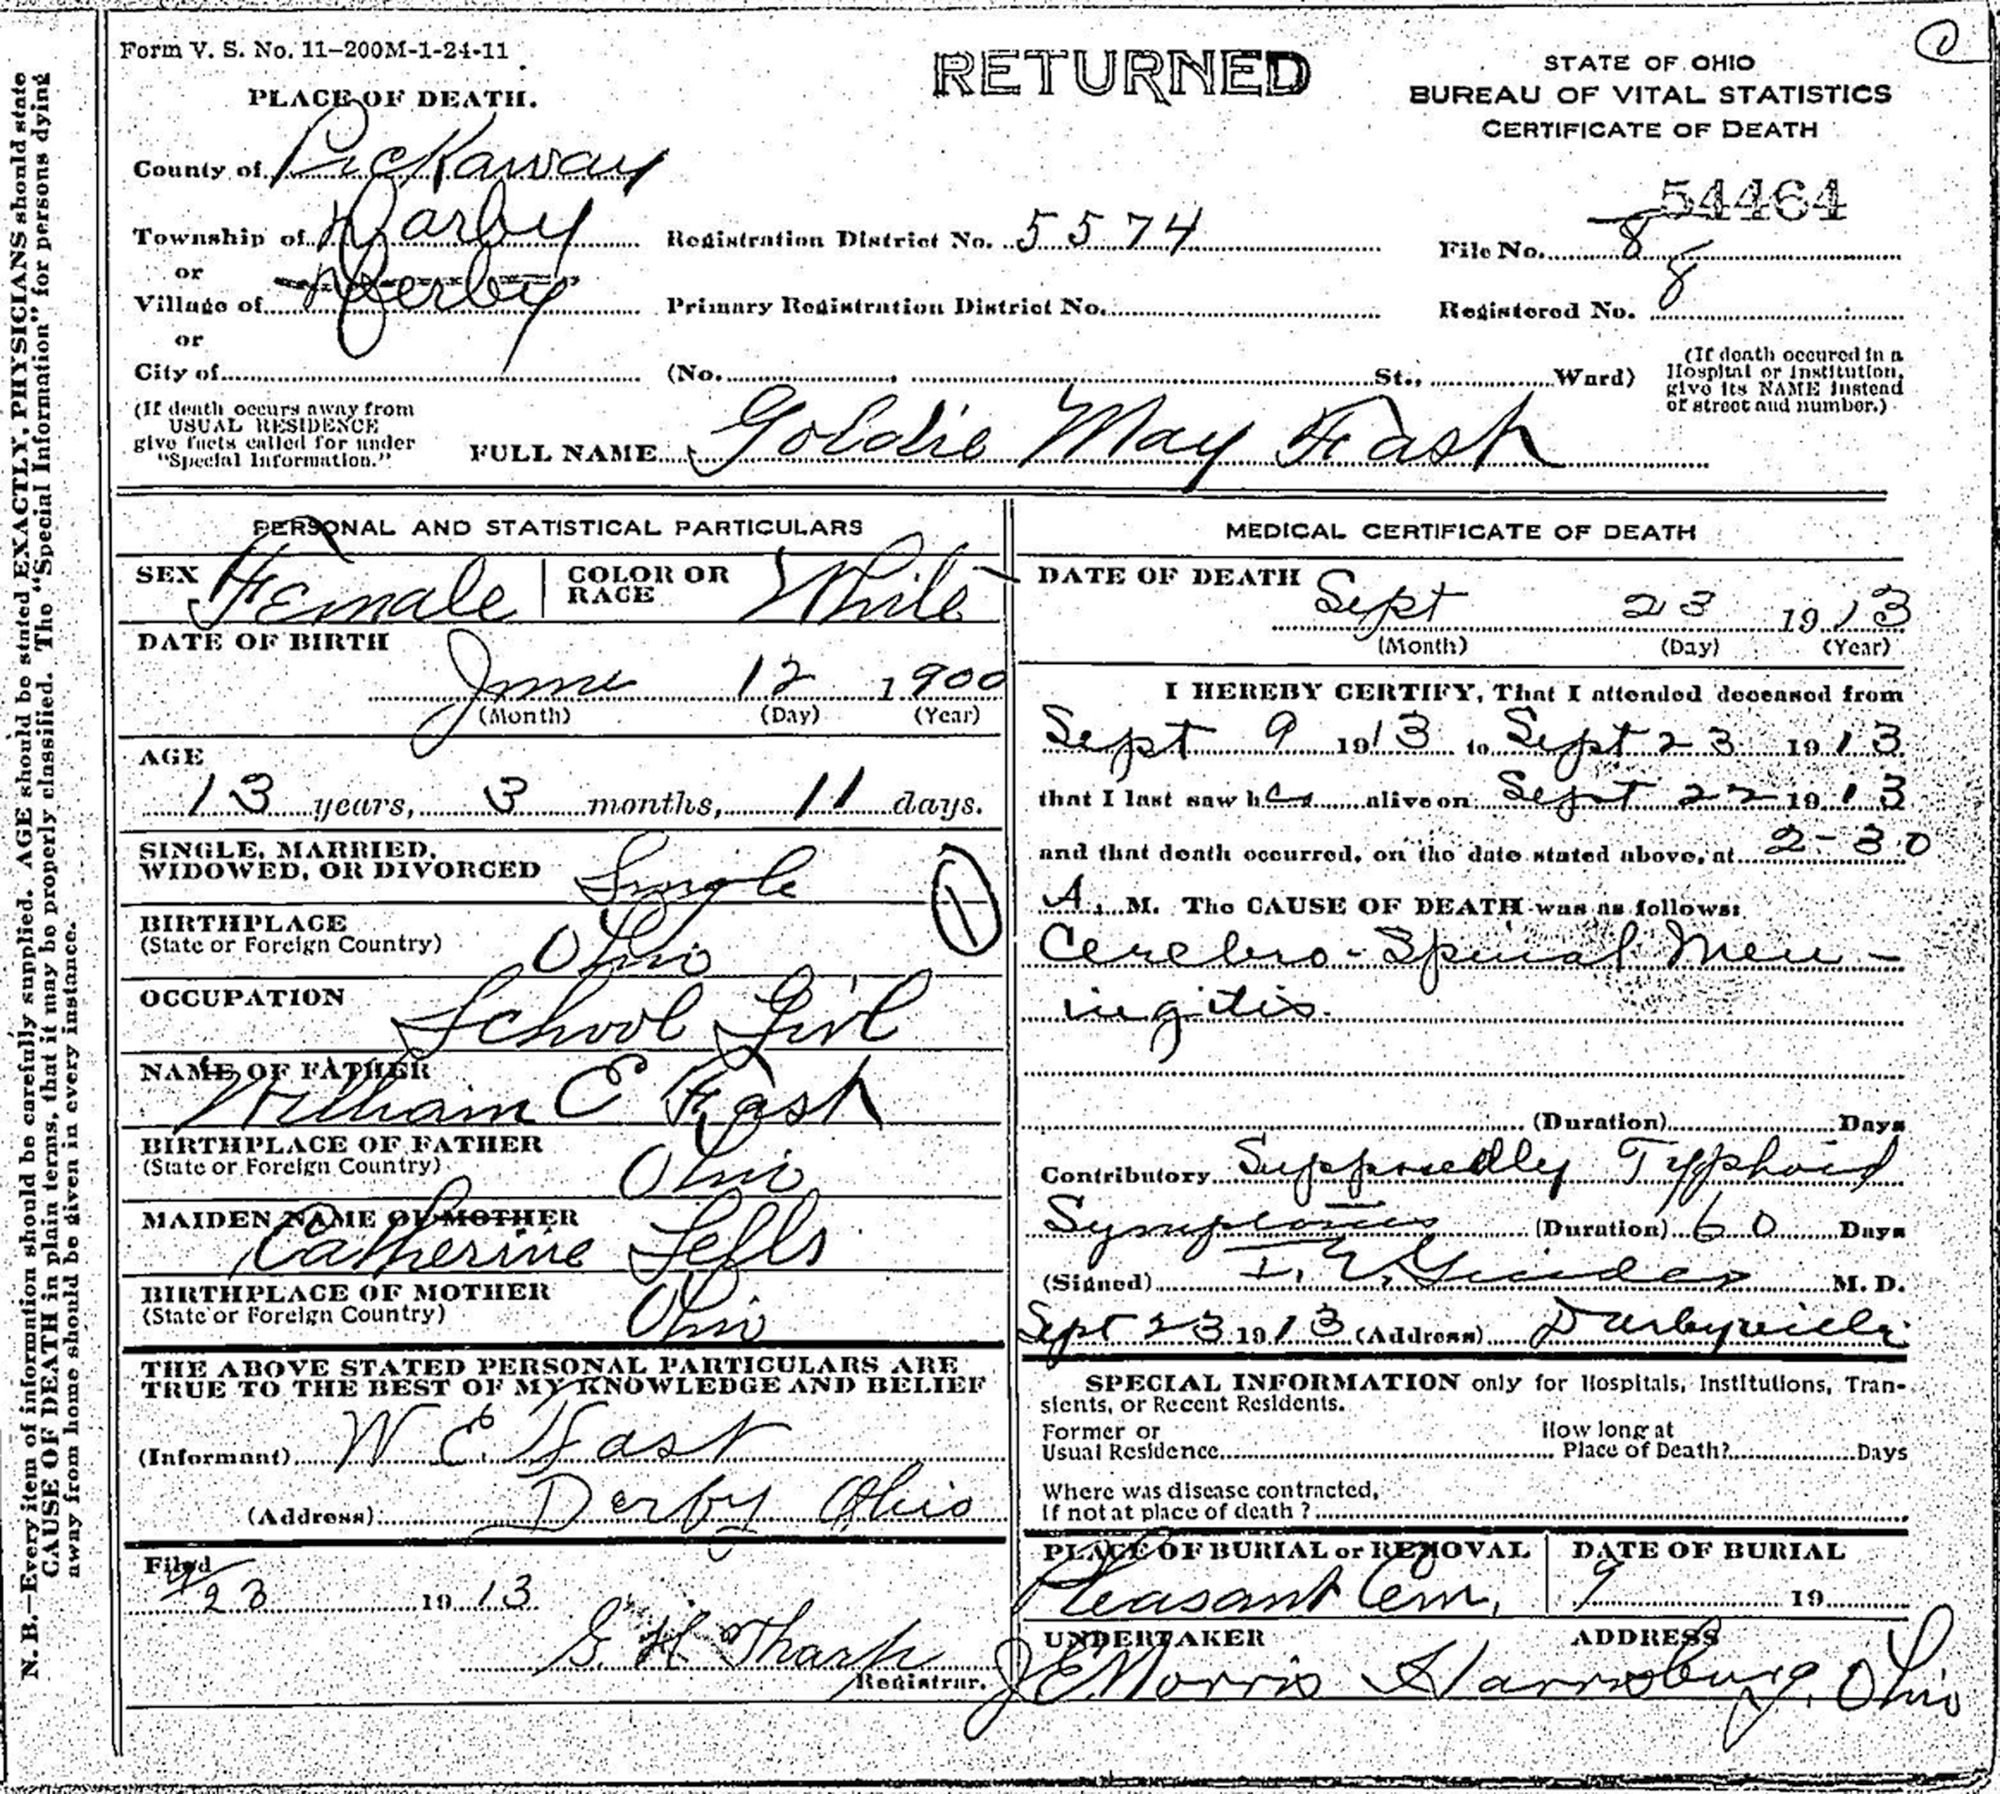 Form V. S. No. 11-200M-1-24-11
RETURNED
STATE OF OHIO
BUREAU OF VITAL STATISTICS
CERTIFICATE OF DEATH
PLACE OF DEATH.
County of Pickaway
54464
Township of Darby
Registration District No. 5574
File No. 8
or
Village of Derby
Primary Registration District No.
Registered No. 8
or
City of
(No. , St., Ward)
(If death occured in a
Hospital or Institution,
give its NAME instead
of street and number.)
(If death occurs away from
USUAL RESIDENCE
give facts called for under
"Special Information.")
FULL NAME Goldie May Fash
PERSONAL AND STATISTICAL PARTICULARS
SEX Female
COLOR OR
RACE White
DATE OF BIRTH
June 12 1900
(Month) (Day) (Year)
AGE
13 years, 3 months, 11 days.
SINGLE, MARRIED,
WIDOWED, OR DIVORCED Single
BIRTHPLACE
(State or Foreign Country) Ohio
1
OCCUPATION
School Girl
NAME OF FATHER
William E Fash
BIRTHPLACE OF FATHER
(State or Foreign Country) Ohio
MAIDEN NAME OF MOTHER
Catherine Sells
BIRTHPLACE OF MOTHER
(State or Foreign Country) Ohio
THE ABOVE STATED PERSONAL PARTICULARS ARE
TRUE TO THE BEST OF MY KNOWLEDGE AND BELIEF
(Informant) W. E. Fast
(Address) Derby Ohio
Filed
9/23 1913
G. H. Tharp
Registrar.
MEDICAL CERTIFICATE OF DEATH
DATE OF DEATH
Sept 23 1913
(Month) (Day) (Year)
I HEREBY CERTIFY, That I attended deceased from
Sept 9 1913 to Sept 23 1913
that I last saw her alive on Sept 22 1913
and that death occurred, on the date stated above, at 2-30
A. M. The CAUSE OF DEATH was as follows:
Cerebro-Spinal Men-
ingitis.
(Duration) Days
Contributory Supposedly Typhoid
Symptoms (Duration) 60 Days
(Signed) M. D.
Sept 23 1913 (Address) Darbyville
SPECIAL INFORMATION only for Hospitals, Institutions, Tran-
sients, or Recent Residents.
Former or
Usual Residence
How long at
Place of Death? Days
Where was disease contracted,
If not at place of death?
PLACE OF BURIAL or REMOVAL
Pleasant Cem.
DATE OF BURIAL
9 19
UNDERTAKER
J E Morris
ADDRESS
Harrisburg, Ohio
N. B.—Every item of information should be carefully supplied. AGE should be stated EXACTLY, PHYSICIANS should state
CAUSE OF DEATH in plain terms, that it may be properly classified. The "Special Information" for persons dying
away from home should be given in every instance.